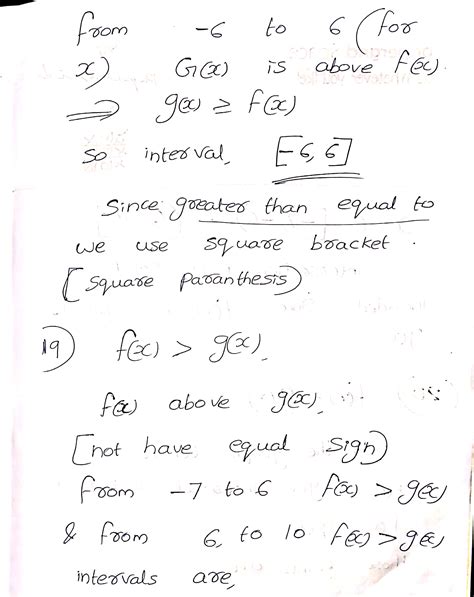 from -6 to 6 (for
x) G(x) is above f(x).
⟹ g(x) ≥ f(x)
so interval, [-6, 6]
Since greater than equal to
we use square bracket.
[square paranthesis)
19) f(x) > g(x),
f(x) above g(x),
[not have equal sign)
from -7 to 6 f(x) > g(x)
& from 6, to 10 f(x) > g(x)
intervals are,